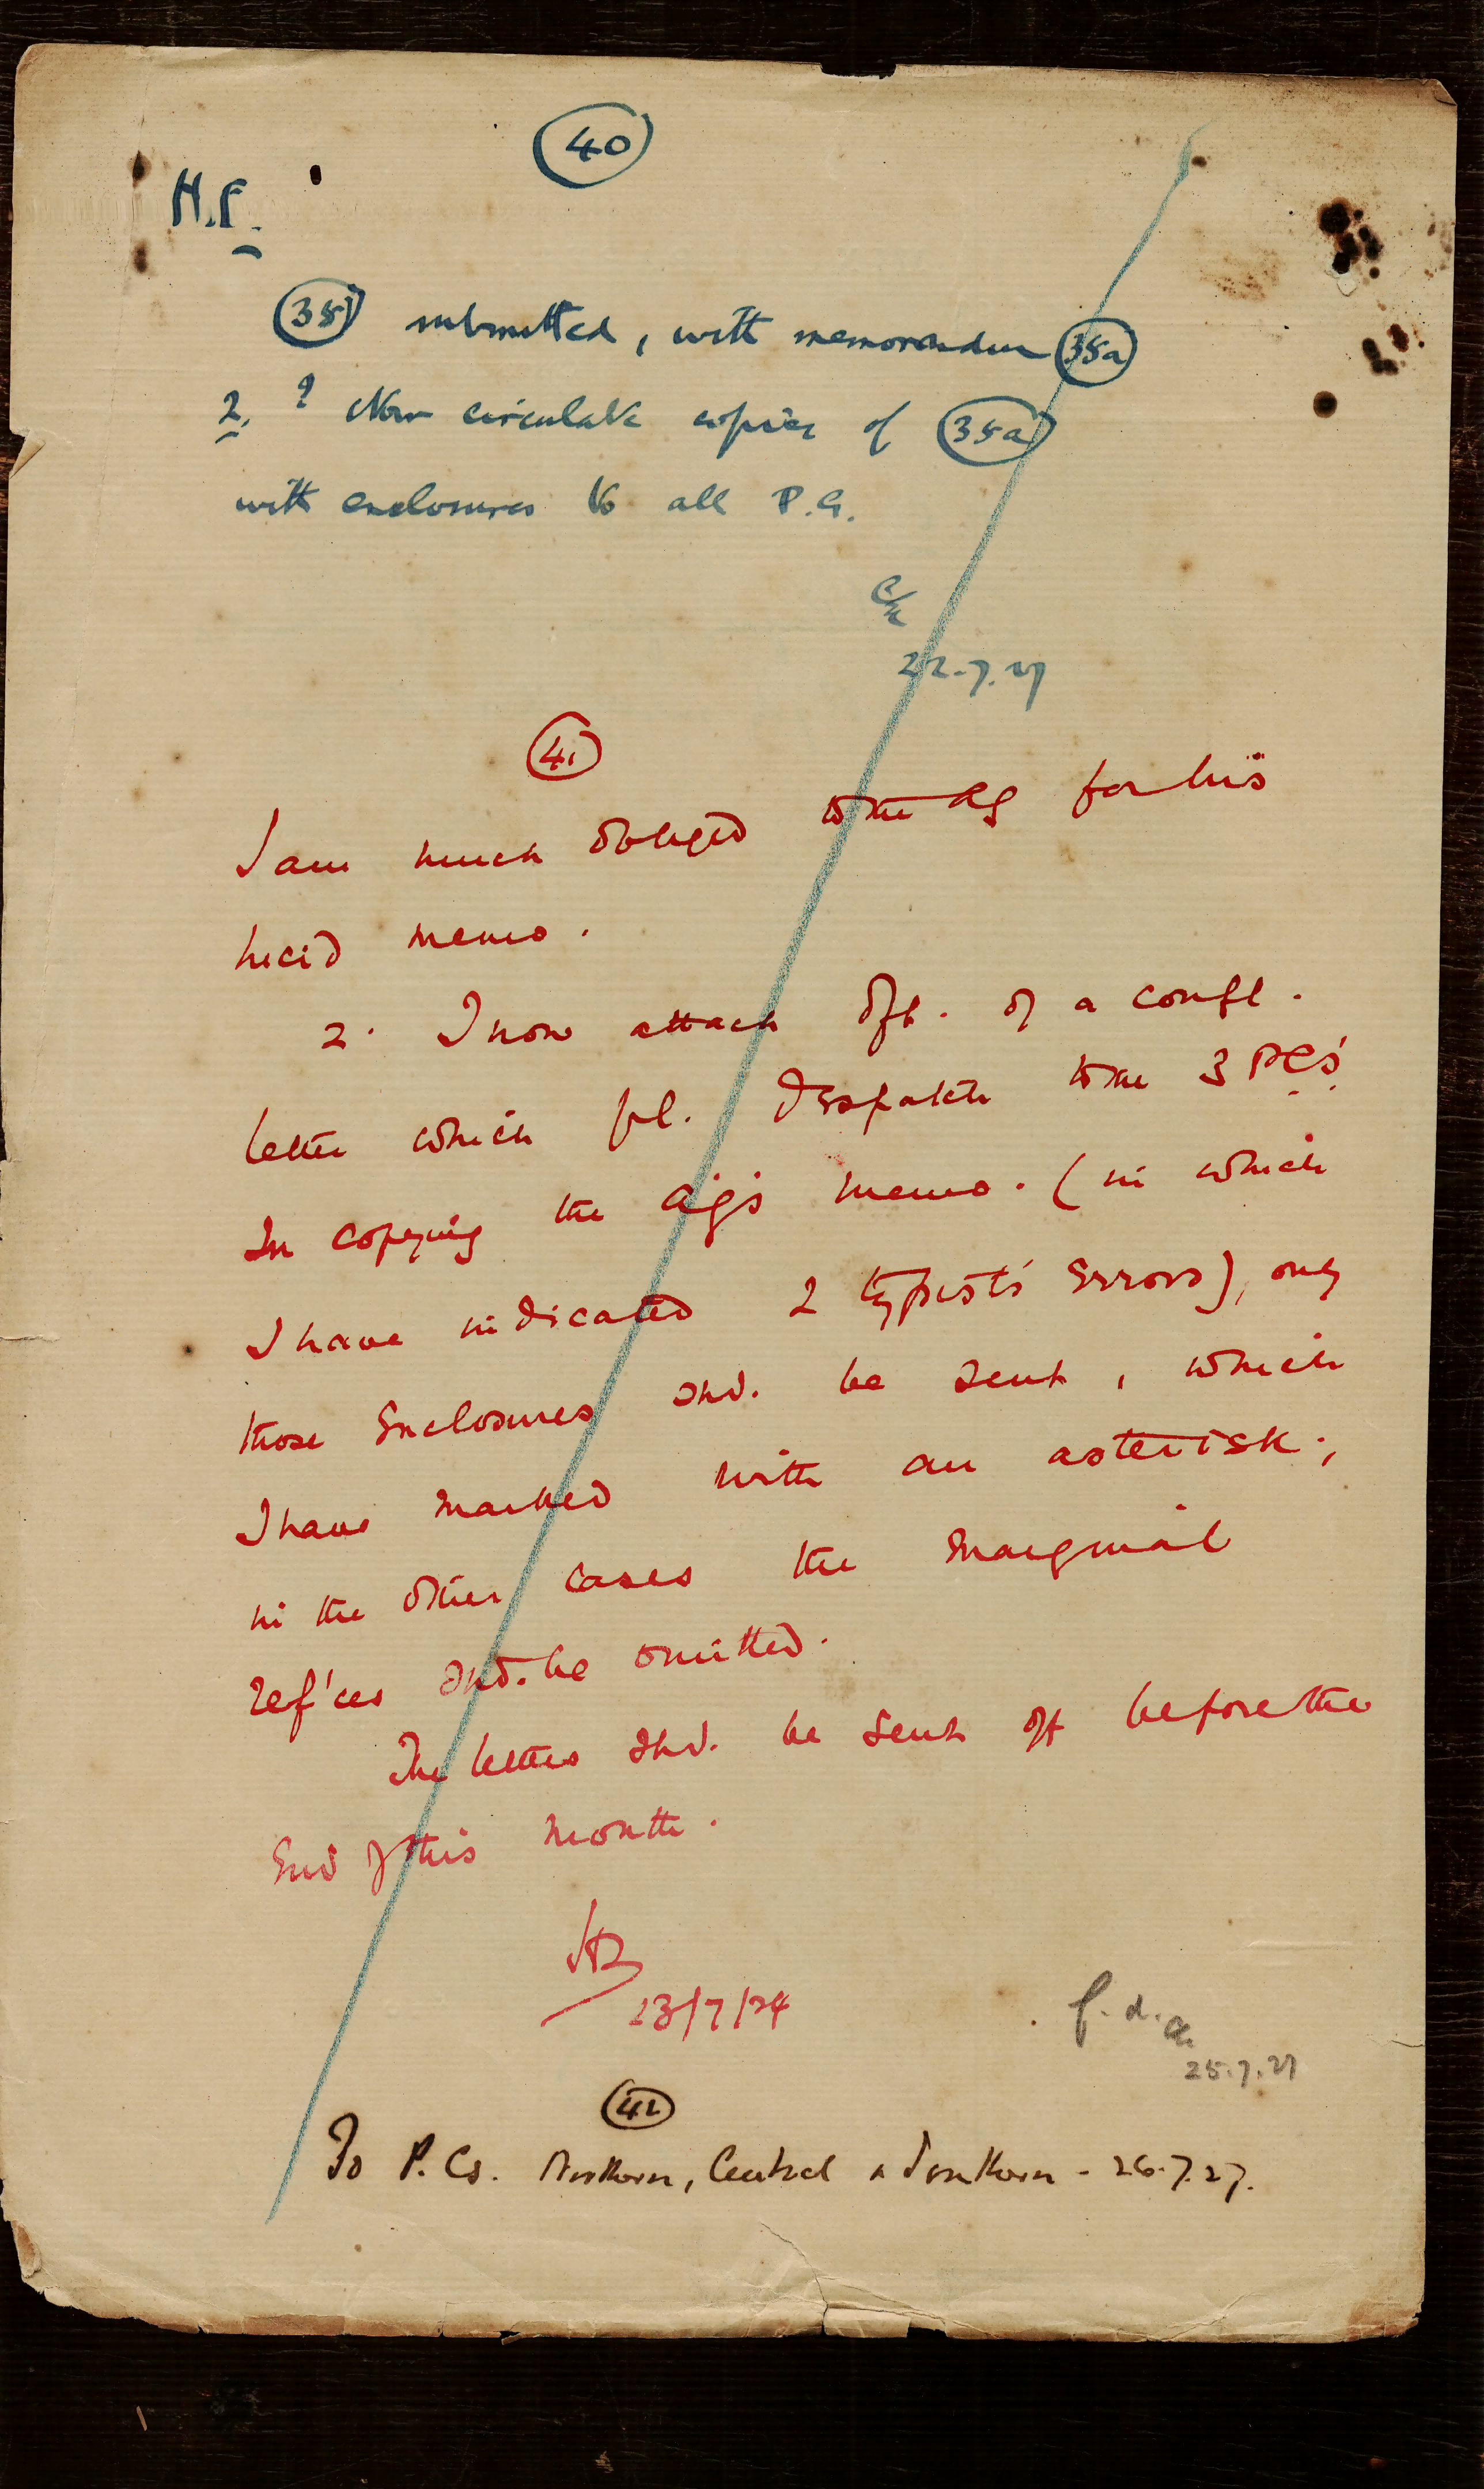 40
H.E.
38 submitted, with memorandum 38a
2. ? Now circulate copies of 38a
with enclosures to all P.C.
22.7.27
41
I am much obliged to the AG for his
lucid memo.
2. I now attach dft. of a confl.
letter which pl. despatch to the 3 PCs'.
In copying the AG's memo. (in which
I have indicated 2 typist's errors), only
those enclosures shd. be sent, which
I have marked with an asterisk;
in the other cases the marginal
ref'ces shd. be omitted.
The letters shd. be sent off before the
end of this month.
23/7/27
25.7.27
42
To P.Cs. Northern, Central & Southern - 26.7.27.